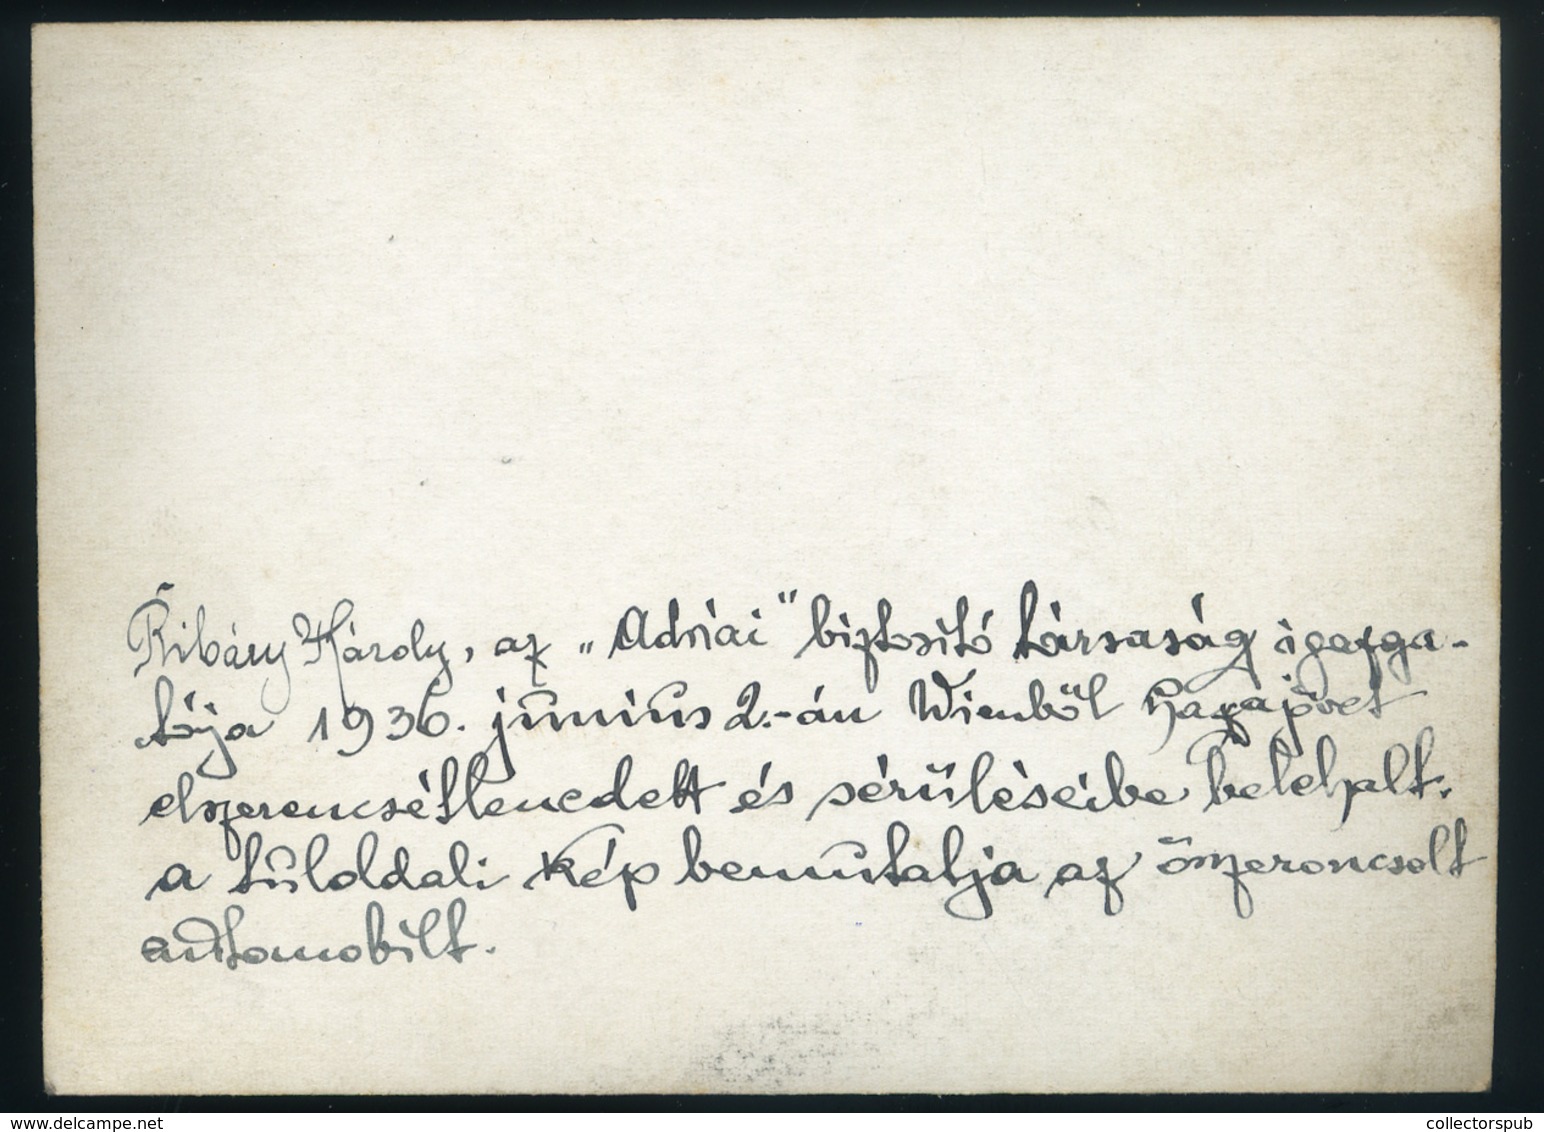 Ribáry Károly, az „Adriai" biztositó társaság igazga-
tója 1936. junius 2.-án Wienből hazajövet
elszerencsétlenedett és sérüléseibe belehalt.
a túloldali kép bemutatja az öszeroncsolt
automobilt.
www.delcampe.net
collectorspub